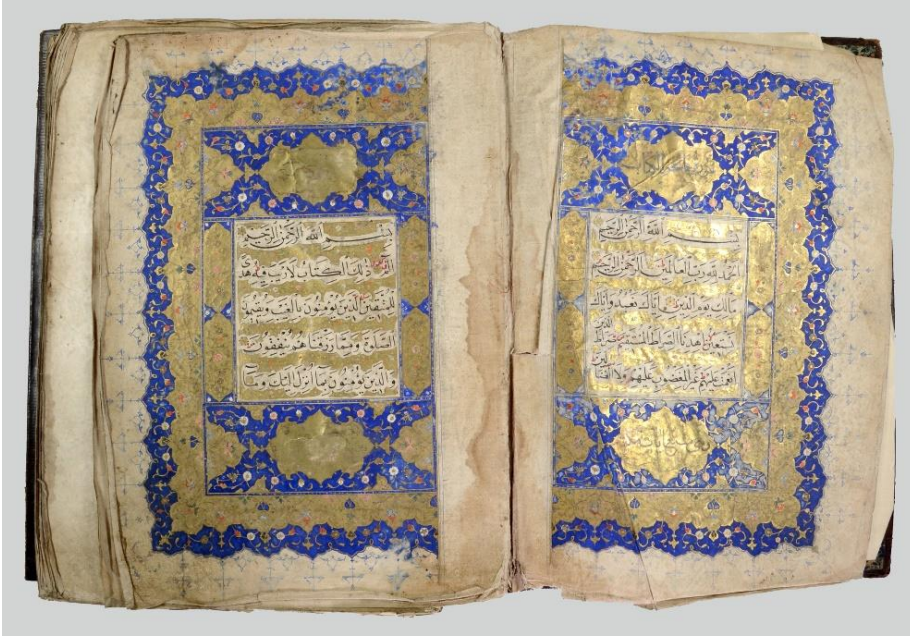 بِسْمِ اللّٰهِ الرَّحْمٰنِ الرَّحِيمِ
الْحَمْدُ لِلّٰهِ رَبِّ الْعَالَمِينَ الرَّحْمٰنِ الرَّحِيمِ
مَالِكِ يَوْمِ الدِّينِ إِيَّاكَ نَعْبُدُ وَإِيَّاكَ
نَسْتَعِينُ اهْدِنَا الصِّرَاطَ الْمُسْتَقِيمَ صِرَاطَ الَّذِينَ
أَنْعَمْتَ عَلَيْهِمْ غَيْرِ الْمَغْضُوبِ عَلَيْهِمْ وَلَا الضَّالِّينَ
بِسْمِ اللّٰهِ الرَّحْمٰنِ الرَّحِيمِ
الم ذٰلِكَ الْكِتَابُ لَا رَيْبَ فِيهِ هُدًى
لِلْمُتَّقِينَ الَّذِينَ يُؤْمِنُونَ بِالْغَيْبِ وَيُقِيمُونَ
الصَّلَاةَ وَمِمَّا رَزَقْنَاهُمْ يُنْفِقُونَ
وَالَّذِينَ يُؤْمِنُونَ بِمَا أُنْزِلَ إِلَيْكَ وَمَا